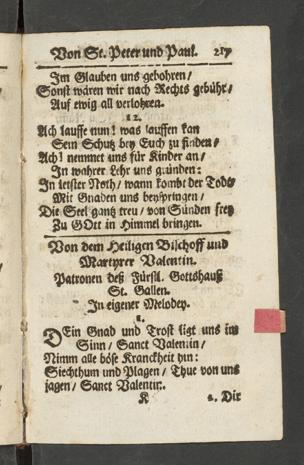 Von St. Peter und Paul. 217
Im Glauben uns gebohren/
Sonst wären wir nach Rechts gebühr/
Auf ewig all verlohren.
12.
Ach lauffe nun! was lauffen kan
Sein Schutz bey Euch zu finden/
Ach! nemmet uns für Kinder an/
In wahrer Lehr uns gründen:
In letster Noth/ wann kombt der Todt/
Mit Gnaden uns beyspringen/
Die Seel gantz treu/ von Sünden frey
Zu GOtt in Himmel bringen.
Von dem Heiligen Bischoff und
Martyrer Valentin.
Patronen deß Fürstl. Gottshauß
St. Gallen.
In eigener Melodey.
1.
DEin Gnad und Trost ligt uns im
Sinn/ Sanct Valentin/
Nimm alle böse Kranckheit hin:
Siechthum und Plagen/ Thue von uns
jagen/ Sanct Valentin.
K 2. Dir